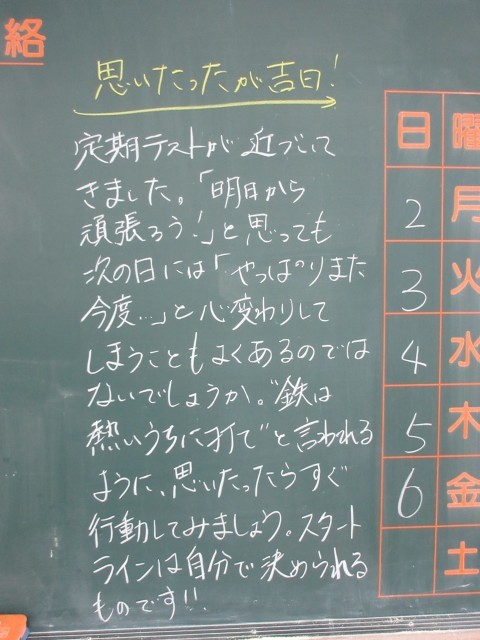 絡
思いたったが吉日!
定期テストが近づいて
きました。「明日から
頑張ろう!」と思っても
次の日には「やっぱりまた
今度…」と心変わりして
しまうこともよくあるのでは
ないでしょうか。"鉄は
熱いうちに打て"と言われる
ように、思いたったらすぐ
行動してみましょう。スタート
ラインは自分で決められる
ものです!!
日 曜
2 月
3 火
4 水
5 木
6 金
土